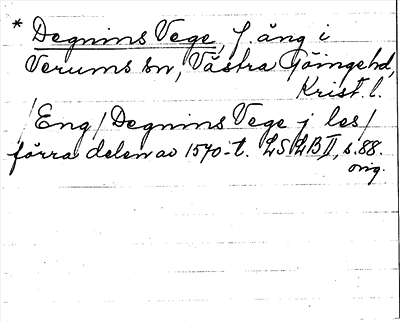 * Degnins Vege, f. äng i
Verums sn, Västra Göinge hd,
Krist. l.
/Eng/ Degnins Vege j les/
förra delen av 1570-t. LSLB II, s. 88.
orig.